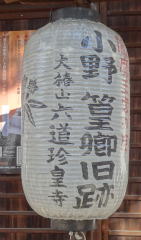 小野篁卿旧跡
大椿山六道珍皇寺